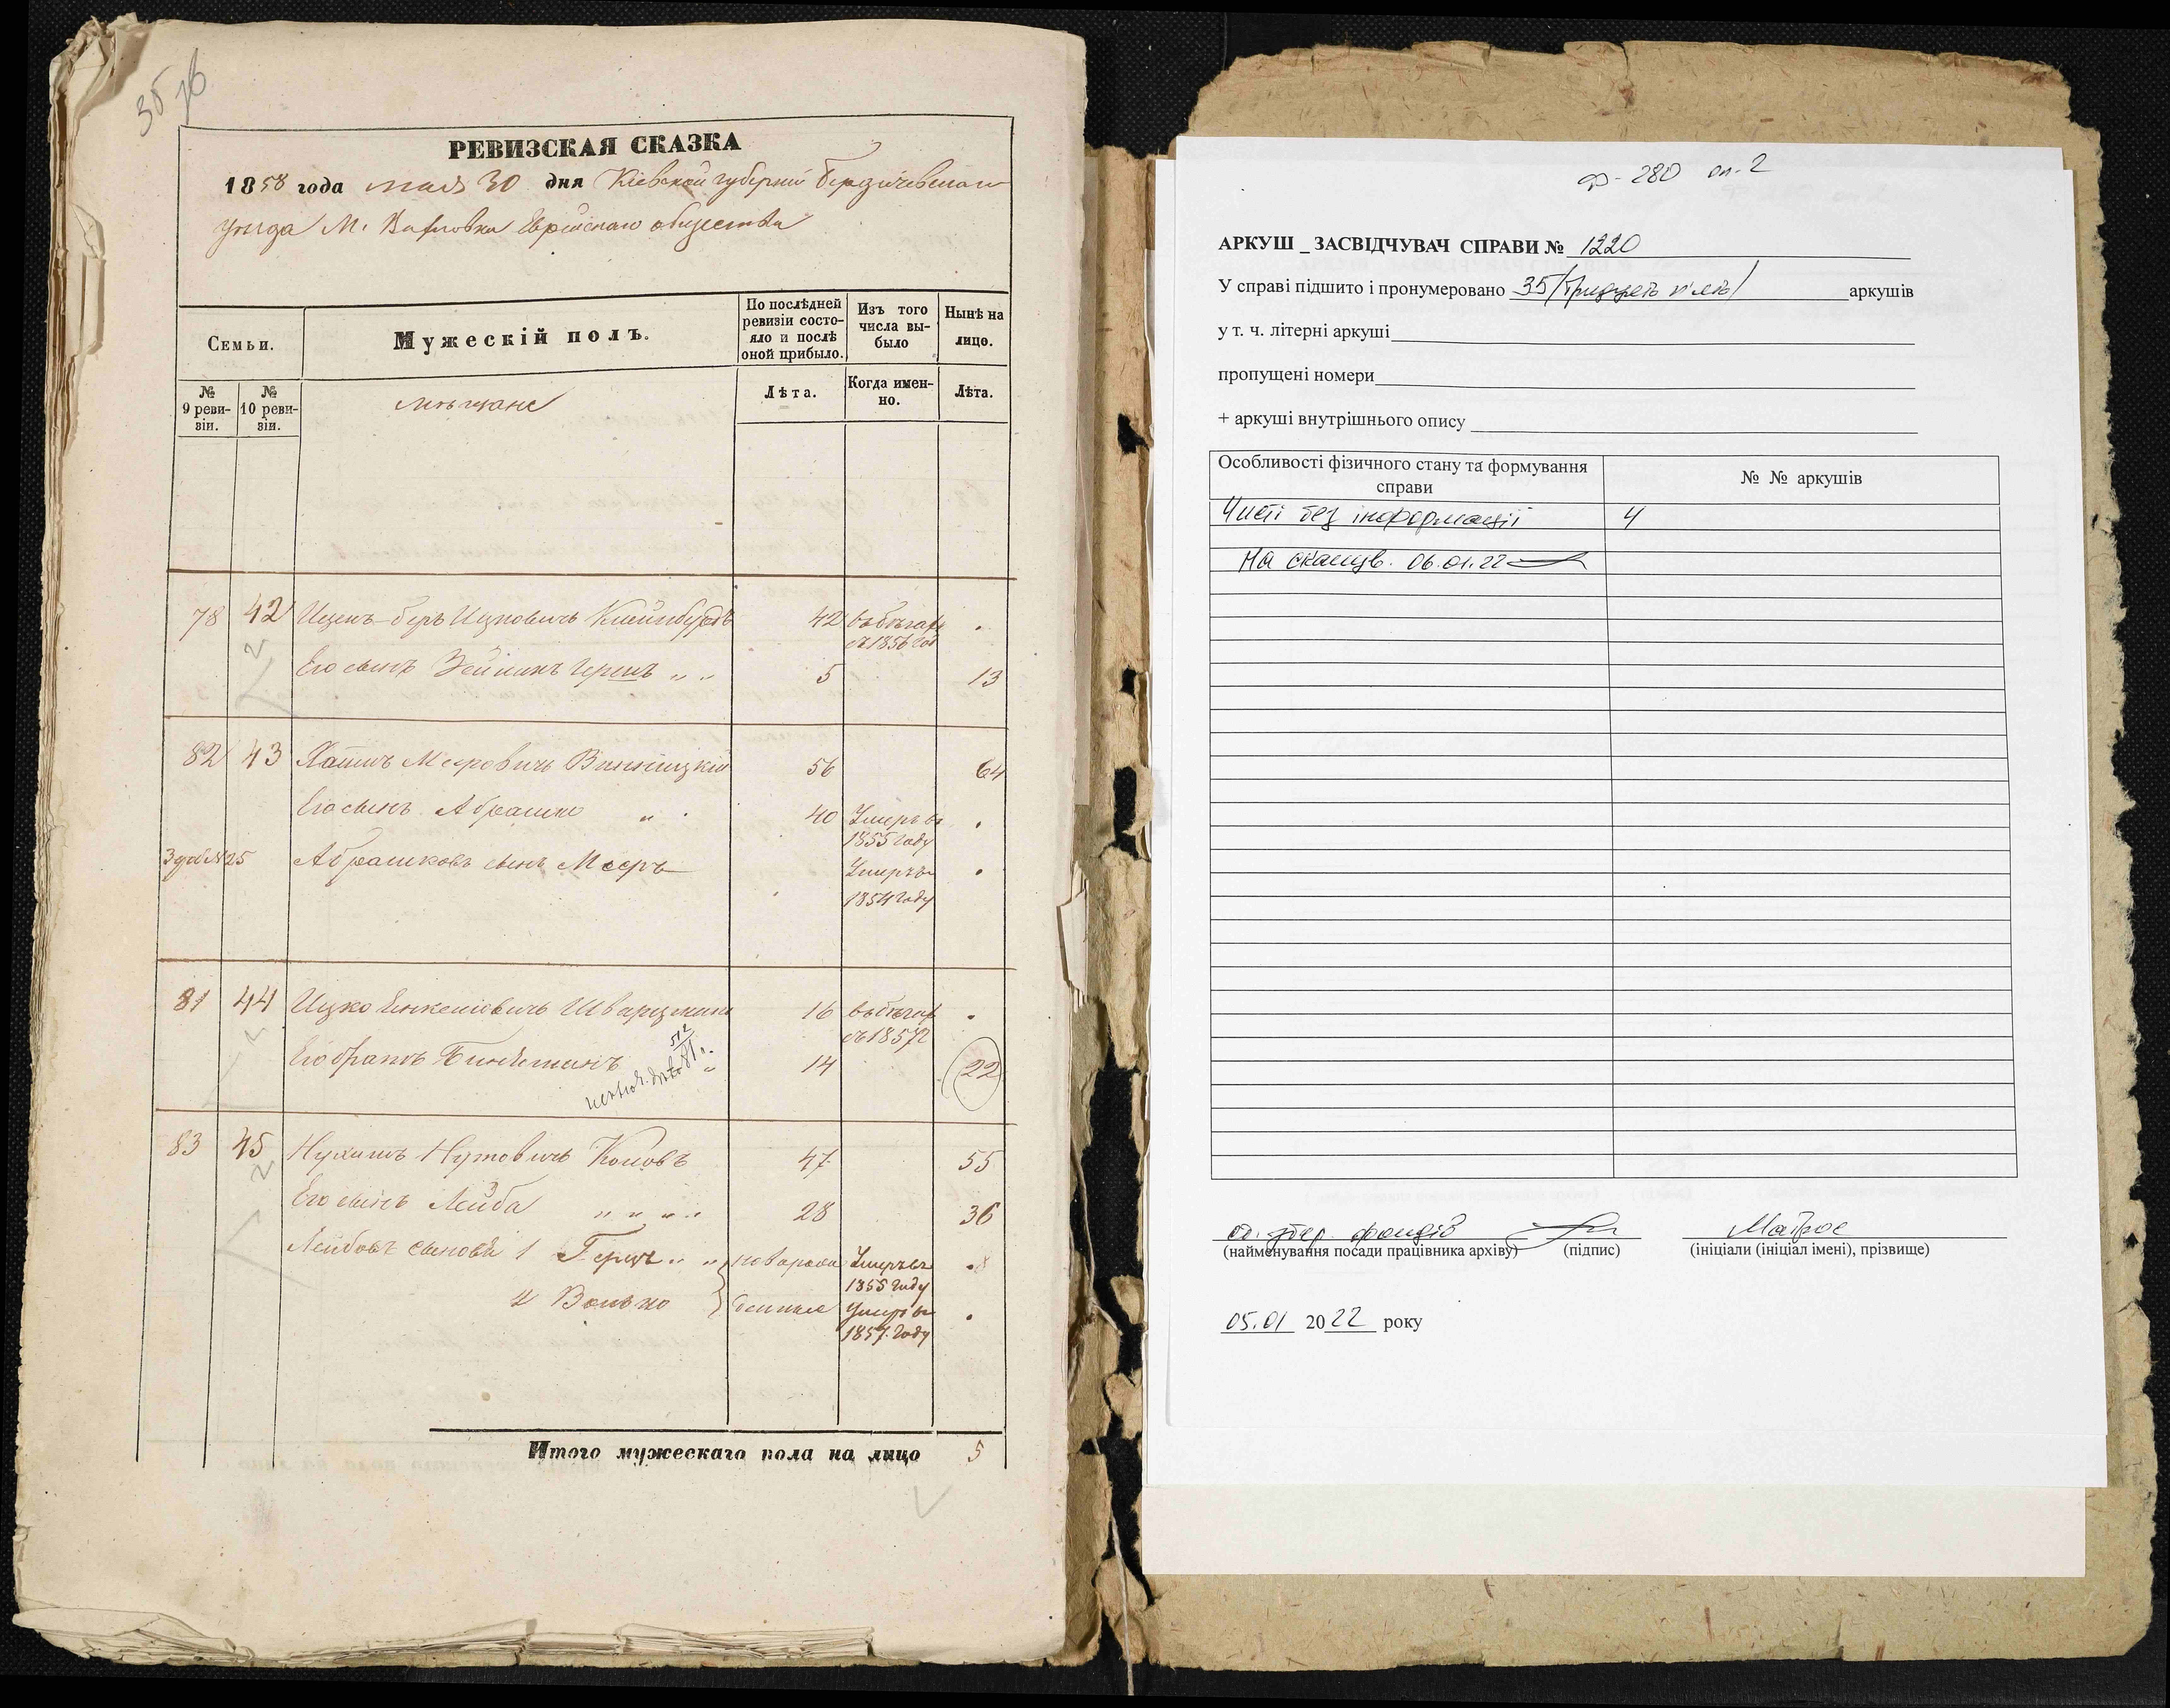 РЕВИЗСКАЯ СКАЗКА
1858 года мая 30 дня Кіевской губерніи Бердичевскаго
уѣзда М. Еврейскаго общества
Семьи.
Мужескій полъ.
По послѣдней ревизіи состояло и послѣ оной прибыло.
Изъ того числа выбыло
Нынѣ на лицо.
№ 9 ревизіи.
№ 10 ревизіи.
мѣщане
Лѣта.
Когда именно.
Лѣта.
78 42 Ицковичъ 42 въ бѣгахъ
съ 1856 год
Его сынъ Зейликъ Гершъ „ „ 5 13
82 43 Мееровичъ Винницкій 56 64
Его сынъ Абрашко „ 40 Умеръ въ
1855 году
25 Абрашковъ сынъ Мееръ Умеръ въ
1854 году
81 44 Ицко Шварцманъ 16 въ бѣгах
съ 1857 г
Его братъ 14 22
83 45 Нухимъ Нутовичъ 47 55
Его сынъ Лейба „ „ „ „ 28 36
Лейбовы сыновья 1 Герцъ „ „ по Умеръ въ
1855 году
2 Волько Умеръ въ
1857 году
Итого мужескаго пола на лицо 5
ф-280 оп.2
АРКУШ _ ЗАСВІДЧУВАЧ СПРАВИ № 1220
У справі підшито і пронумеровано 35 /тридцять п'ять/ аркушів
у т. ч. літерні аркуші
пропущені номери
+ аркуші внутрішнього опису
Особливості фізичного стану та формування справи
№ № аркушів
Чисті без інформації 4
На сканув. 06.01.22
фондів
(найменування посади працівника архіву) (підпис) (ініціали (ініціал імені), прізвище)
05.01 2022 року